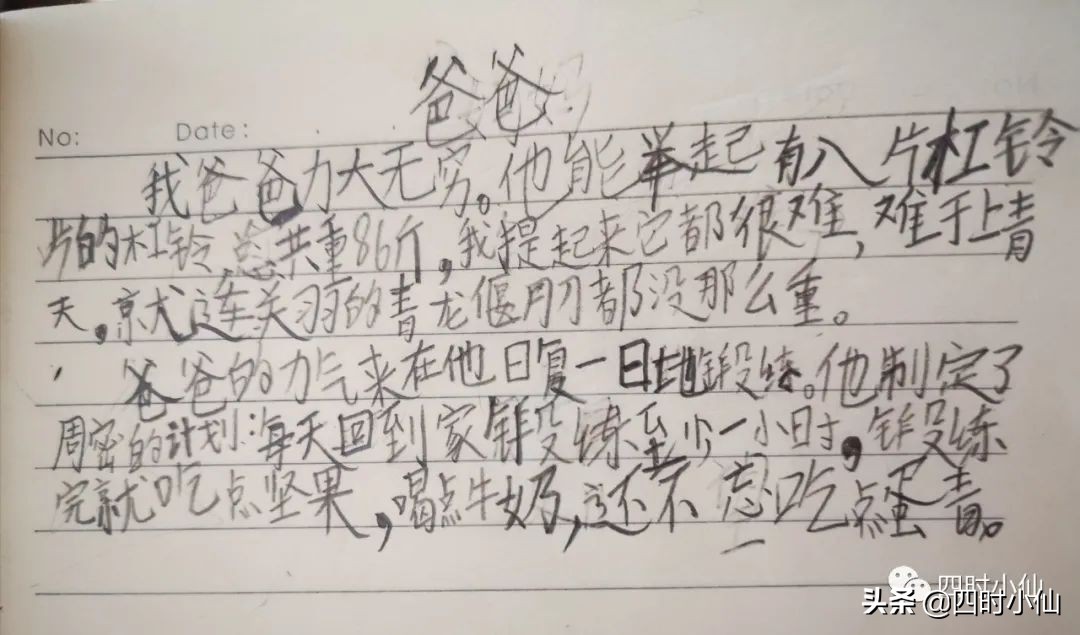 爸爸
No: Date:
我爸爸力大无穷。他能举起有八片杠铃
片的杠铃,总共重86斤,我提起来它都很难,难于上青
天,就连关羽的青龙偃月刀都没那么重。
爸爸的力气来在他日复一日地锻练。他制定了
周密的计划:每天回到家锻练至少一小时,锻练
完就吃点坚果,喝点牛奶,还不忘吃点蛋青。
四时小仙
头条@四时小仙